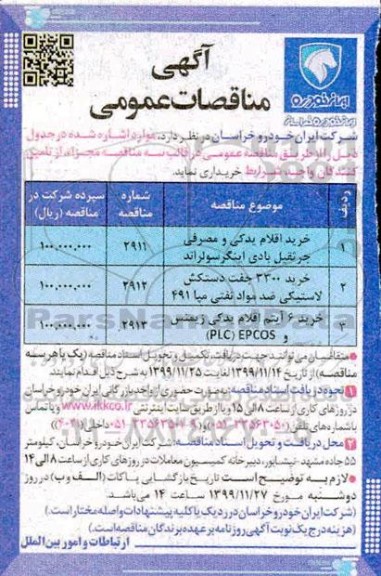 آگهی
مناقصات عمومی
ایران خودرو
ایران خودرو خراسان
شرکت ایران خودرو خراسان در نظر دارد، موارد اشاره شده در جدول
ذیل را از طریق مناقصه عمومی در قالب سه مناقصه مجزا، از تامین
کنندگان واجد شرایط خریداری نماید.
ردیف | موضوع مناقصه | شماره مناقصه | سپرده شرکت در مناقصه (ریال)
۱ | خرید اقلام یدکی و مصرفی جرثقیل بادی اینگرسولراند | ۲۹۱۱ | ۱۰۰,۰۰۰,۰۰۰
۲ | خرید ۳۳۰۰ جفت دستکش لاستیکی ضد مواد نفتی میا ۴۹۱ | ۲۹۱۲ | ۱۰۰,۰۰۰,۰۰۰
۳ | خرید ۶ آیتم اقلام یدکی زیمنس و EPCOS (PLC) | ۲۹۱۳ | ۱۰۰,۰۰۰,۰۰۰
متقاضیان می‌توانند جهت دریافت، تکمیل و تحویل اسناد مناقصه (یک یا هر سه
مناقصه) از تاریخ ۱۳۹۹/۱۱/۱۴ لغایت ۱۳۹۹/۱۱/۲۵ به شرح ذیل اقدام نمایند.
۱ نحوه دریافت اسناد مناقصه: بصورت حضوری از واحد بازرگانی ایران خودرو خراسان
در روزهای کاری از ساعت ۸ الی ۱۵ و یا از طریق سایت اینترنتی www.ikkco.ir و یا تماس
با شماره های تلفن
۲ محل دریافت و تحویل اسناد مناقصه: شرکت ایران خودرو خراسان، کیلومتر
۵۵ جاده مشهد - نیشابور، دبیرخانه کمیسیون معاملات در روزهای کاری از ساعت ۸ الی ۱۴
لازم به توضیح است تاریخ بازگشایی پاکات (الف و ب) در روز
دوشنبه مورخ ۱۳۹۹/۱۱/۲۷ ساعت ۱۴ می‌باشد.
(شرکت ایران خودرو خراسان در رد یک یا کلیه پیشنهادات واصله مختار است.)
(هزینه درج یک نوبت آگهی روزنامه بر عهده برندگان مناقصه است.)
ارتباطات و امور بین الملل